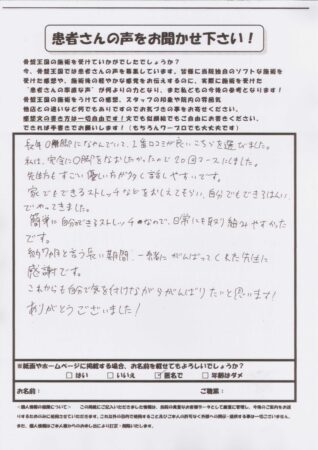 患者さんの声をお聞かせ下さい！
骨盤王国の施術を受けていかがでしたでしょうか？
今、骨盤王国では患者さんの声を募集しています。皆様に当院独自のソフトな施術を
受けた感想や、施術後の軽やかな感覚をお伝えするのに、実際に施術を受けた
患者さんの「率直な声」が何よりの力となり、また私どもの今後の参考となります！
骨盤王国の施術をうけての感想、スタッフの印象や院内の雰囲気
他店との違いなど何でもありですのでお気づきの事をお寄せください。
感想文の書き方は一切自由です！文でも似顔絵でもご自由にお書きください。
できれば手書きでお願いします！（もちろんワープロでも大丈夫です）
長年O脚に なやんでいて、1番口コミが良いこちらを選びました。
私は、完全にO脚をなおしたかったので20回コースにしました。
先生方もすごい優しい方が多く話しやすいです。
家でもできるストレッチなどをおしえてもらい、自分でもできるはんい
でやってきました。
簡単に自分できるストレッチなので、日常にも取り組みやすかった
です。
約7ヶ月と言う長い期間、一緒にがんばってくれた先生に
感謝です。
これからも自分で気を付けながらがんばりたいと思います!
ありがとうございました!
※紙面やホームページに掲載する場合、お名前を載せてもよろしいでしょうか？
□ はい　□ いいえ　☑ 匿名で　□ 年齢はダメ
お名前：　ご職業：